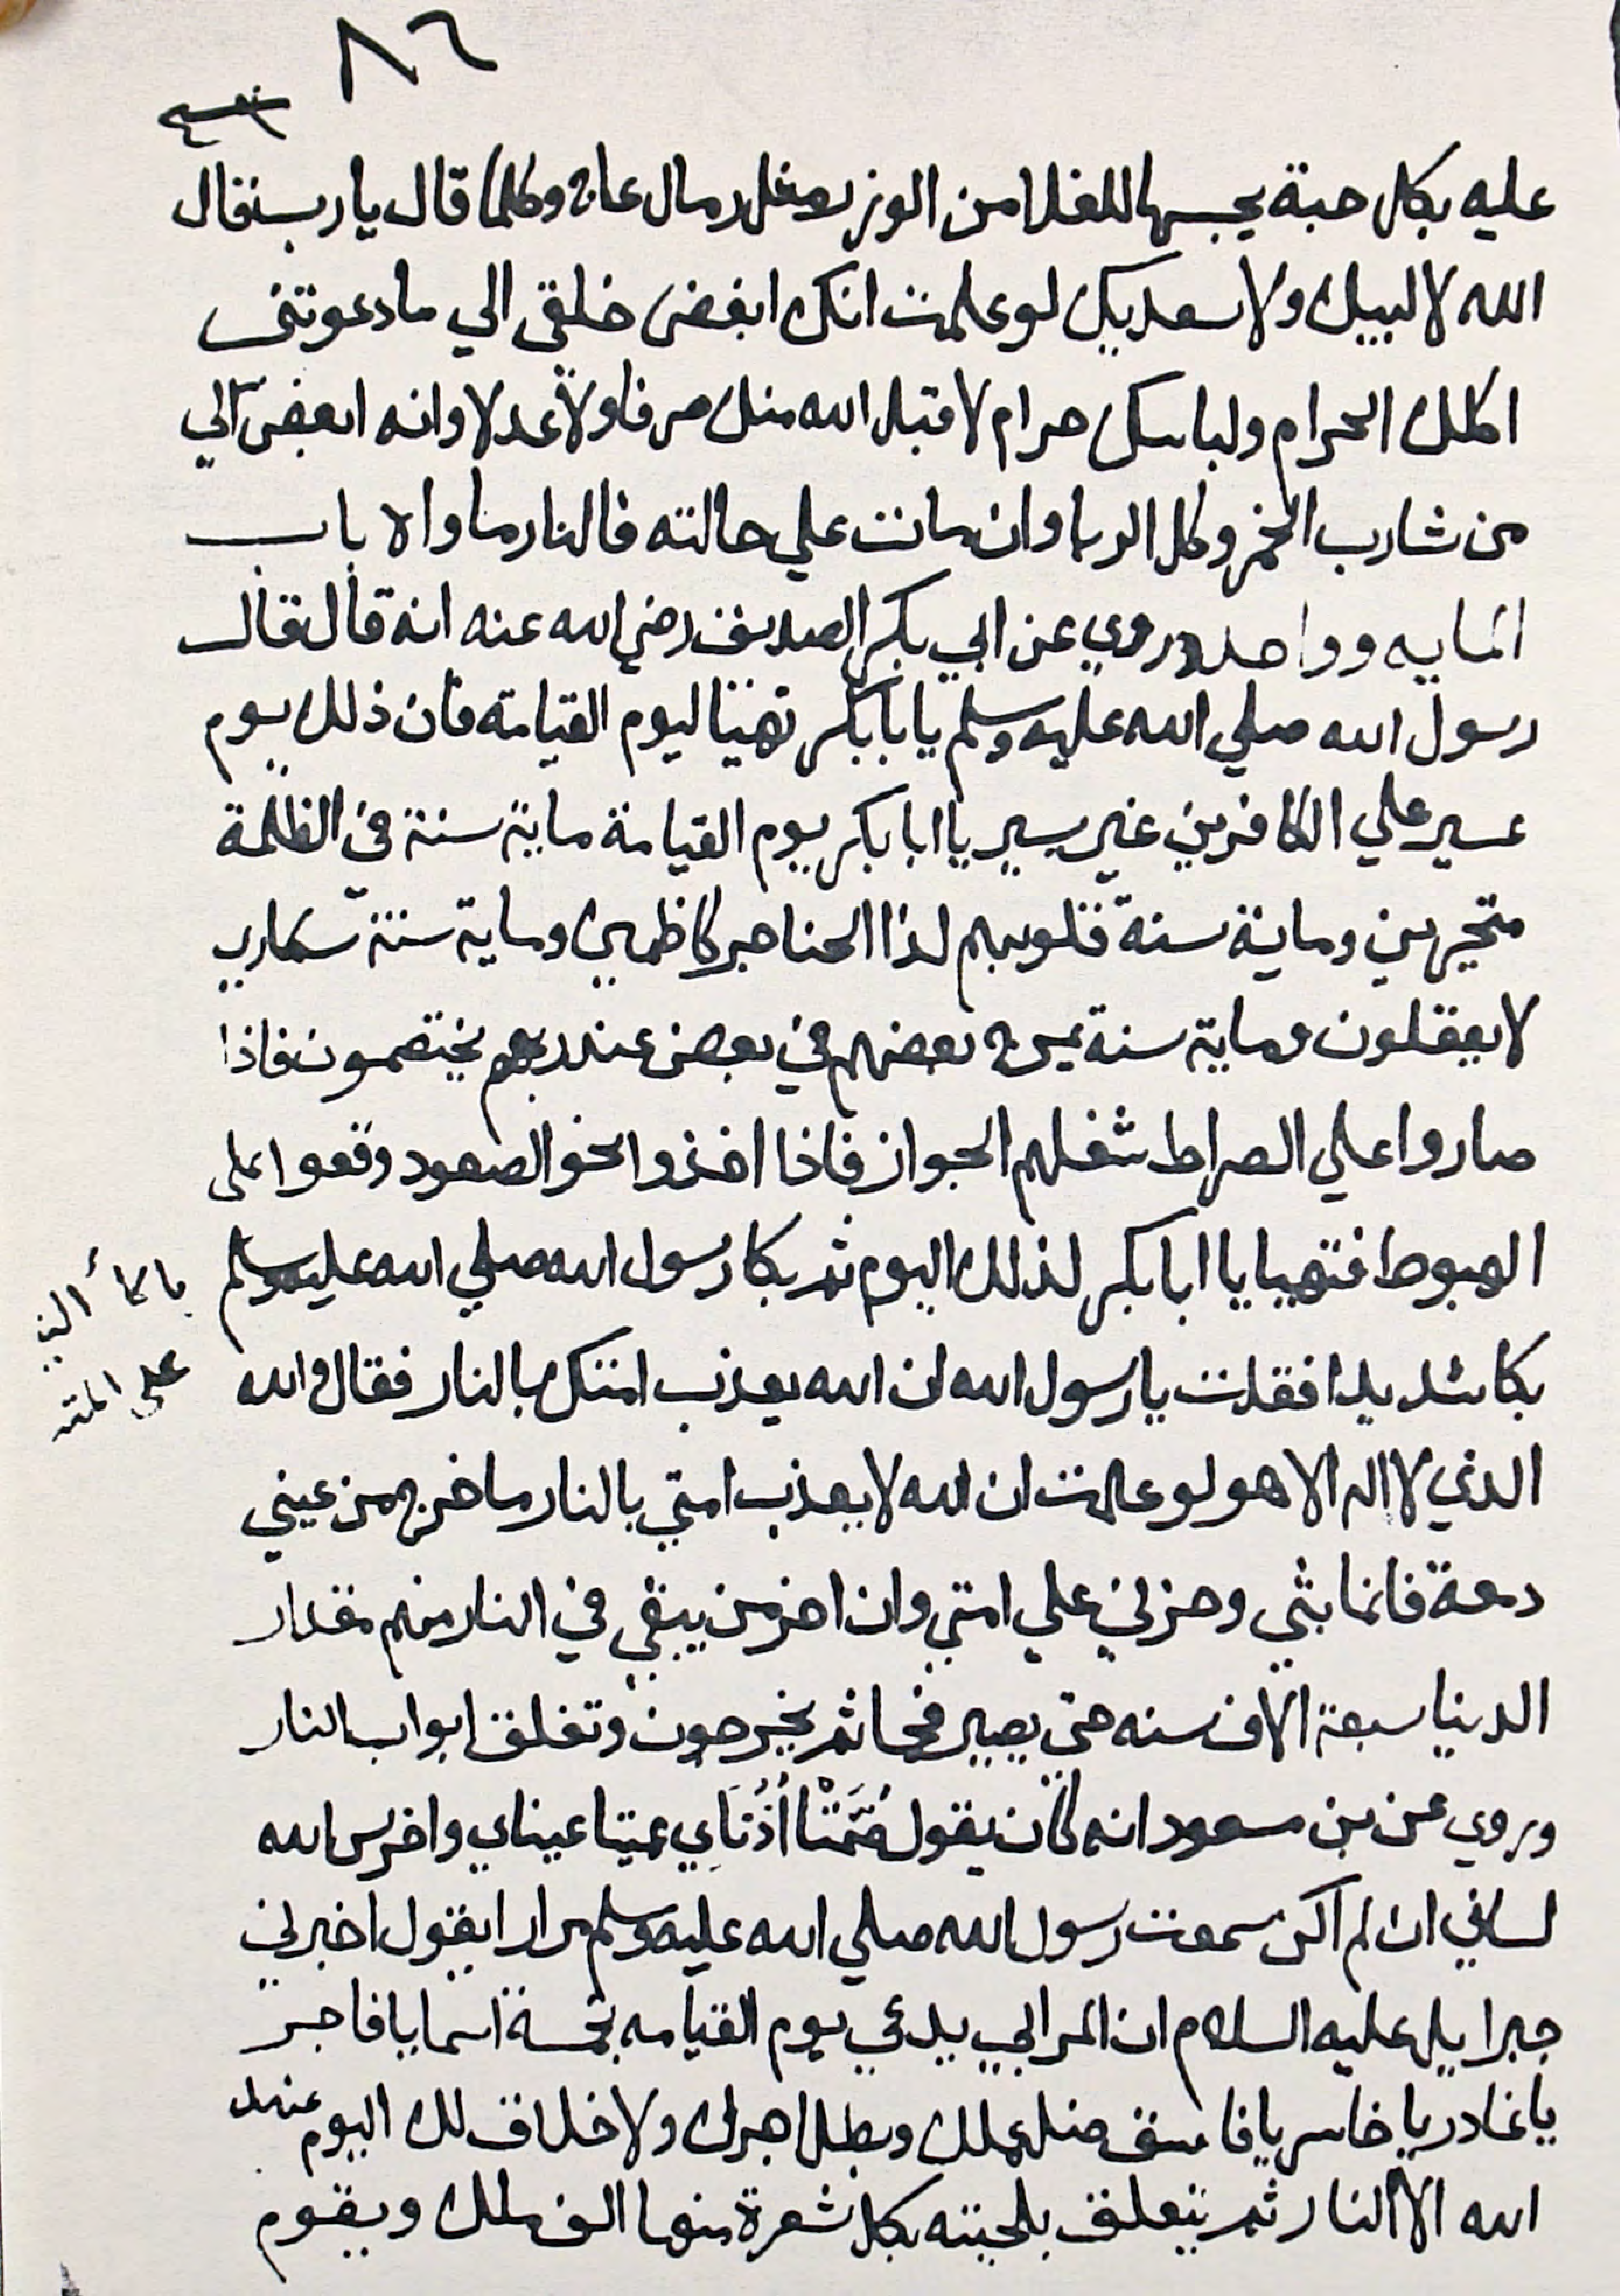 ٨٦
عليه بكل حبة يحبسها للغلا من الوزر مثل رمال عالج وكلما قال يا رب فقال
الله لا لبيك ولا سعديك لو علمت انك ابغض خلقي الي ما دعوتني
اكلك الحرام ولباسك حرام لا قبل الله منك صرفا ولا عدلا وانه ابغض الي
من شارب الخمر وكل الربا وان مات علي حالته فالنار ماواه باب
المايه وواحد وروي عن ابي بكر الصديق رضي الله عنه انه قال قال
رسول الله صلي الله عليه وسلم يا بابكر تهيئا ليوم القيامة فان ذلك يوم
عسير علي الكافرين غير يسير يا ابا بكر يوم القيامة ماية سنة في الظلمة
متحيرين وماية سنة قلوبهم لذا الحناجر كاظمين وماية سنة سكاري
لا يعقلون وماية سنة يموج بعضهم في بعض عند ربهم يختصمون فاذا
صاروا علي الصراط شغلهم الجواز فاذا اخذوا نحو الصعود وقعوا على
الهبوط فتهيا يا ابا بكر لذلك اليوم ثم بكا رسول الله صلي الله عليه وسلم
بكا شديدا فقلت يا رسول الله ان الله يعذب امتك بالنار فقال والله
الذي لا اله الا هو لو علمت ان الله لا يعذب امتي بالنار ما خرج من عيني
دمعة فانما بثي وحزني علي امتي وان اخر من يبقي في النار منهم مقدار
الدنيا سبعة الاف سنه حتي يصير فحما ثم يخرجون وتغلق ابواب النار
وروي عن بن مسعود انه كان يقول صُمَّتْا أُذُنَاي عميتا عيناي واخرس الله
لساني ان لم اكن سمعت رسول الله صلي الله عليه وسلم مرارا يقول اخبرني
جبرايل عليه السلام ان المرابي يدعي يوم القيامه بخمسة اسما يا فاجر
يا غادر يا خاسر يا فاسق ضل عملك وبطل اجرك ولا خلاق لك اليوم عند
الله الا النار ثم يتعلق بلحيته بكل شعرة منها الف ملك ويقوم
بكاء النبي
على امته